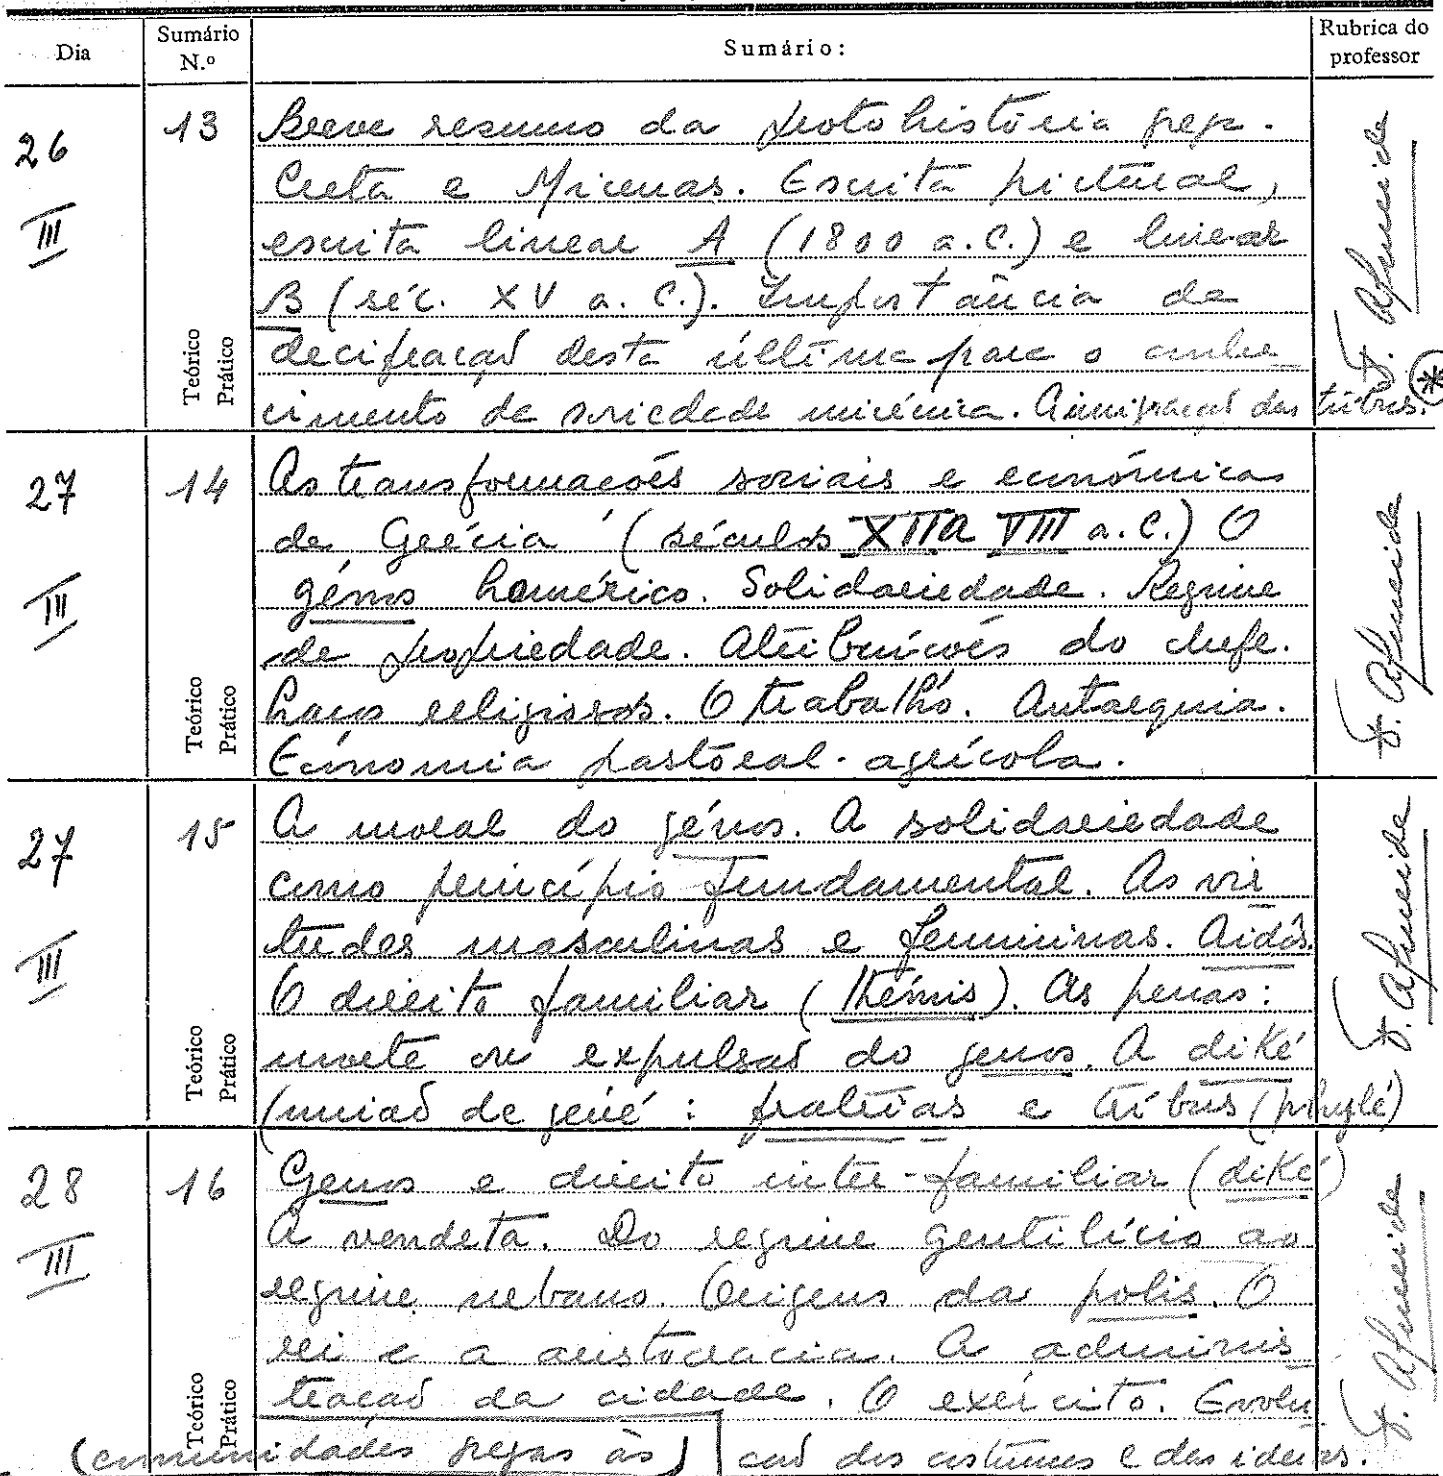 Dia Sumário N.º Sumário: Rubrica do professor
26 III 13 Breve resumo da protohistória greg.
Creta e Micenas. Escrita pictural,
escrita linear A (1800 a.C.) e linear
B (séc. XV a. C.). Importância da
decifração desta última para o conhe
cimento da sociedade micénica. das tribus. *
Teórico Prático
F. Almeida
27 III 14 As transformações sociais e económicas
da Grécia (séculos XII a VIII a.C.) O
génos homérico. Solidariedade. Regime
de propriedade. Atribuíções do chefe.
Laços religiosos. O trabalho. Autarquia.
Economia pastoral-agrícola.
Teórico Prático
F. Almeida
27 III 15 A moral do génos. A solidariedade
como princípio fundamental. As vir
tudes masculinas e femininas. Aidôs.
O direito familiar (thémis). As penas:
morte ou expulsão do genos. A diké
(união de gené: fratrias e tríbus (phylé)
Teórico Prático
F. Almeida
28 III 16 Genos e direito inter-familiar (diké)
A vendeta. Do regime gentilício ao
regime urbano. Origens da polis. O
rei e a aristocracia. A adminis
tração da cidade. O exército. Evolu
ção dos costumes e das ideias.
Teórico Prático
F. Almeida
(comunidades gregas às)